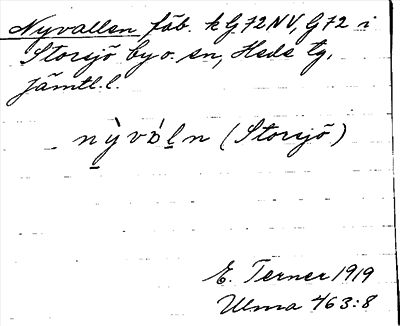 Nyvallen fäb. k G72NV, G72 i
Storsjö by o. sn, Heds tg,
Jämtl. l.
nỳvó̀ḷn (Storsjö)
E. Terner 1919
Ulma 463:8